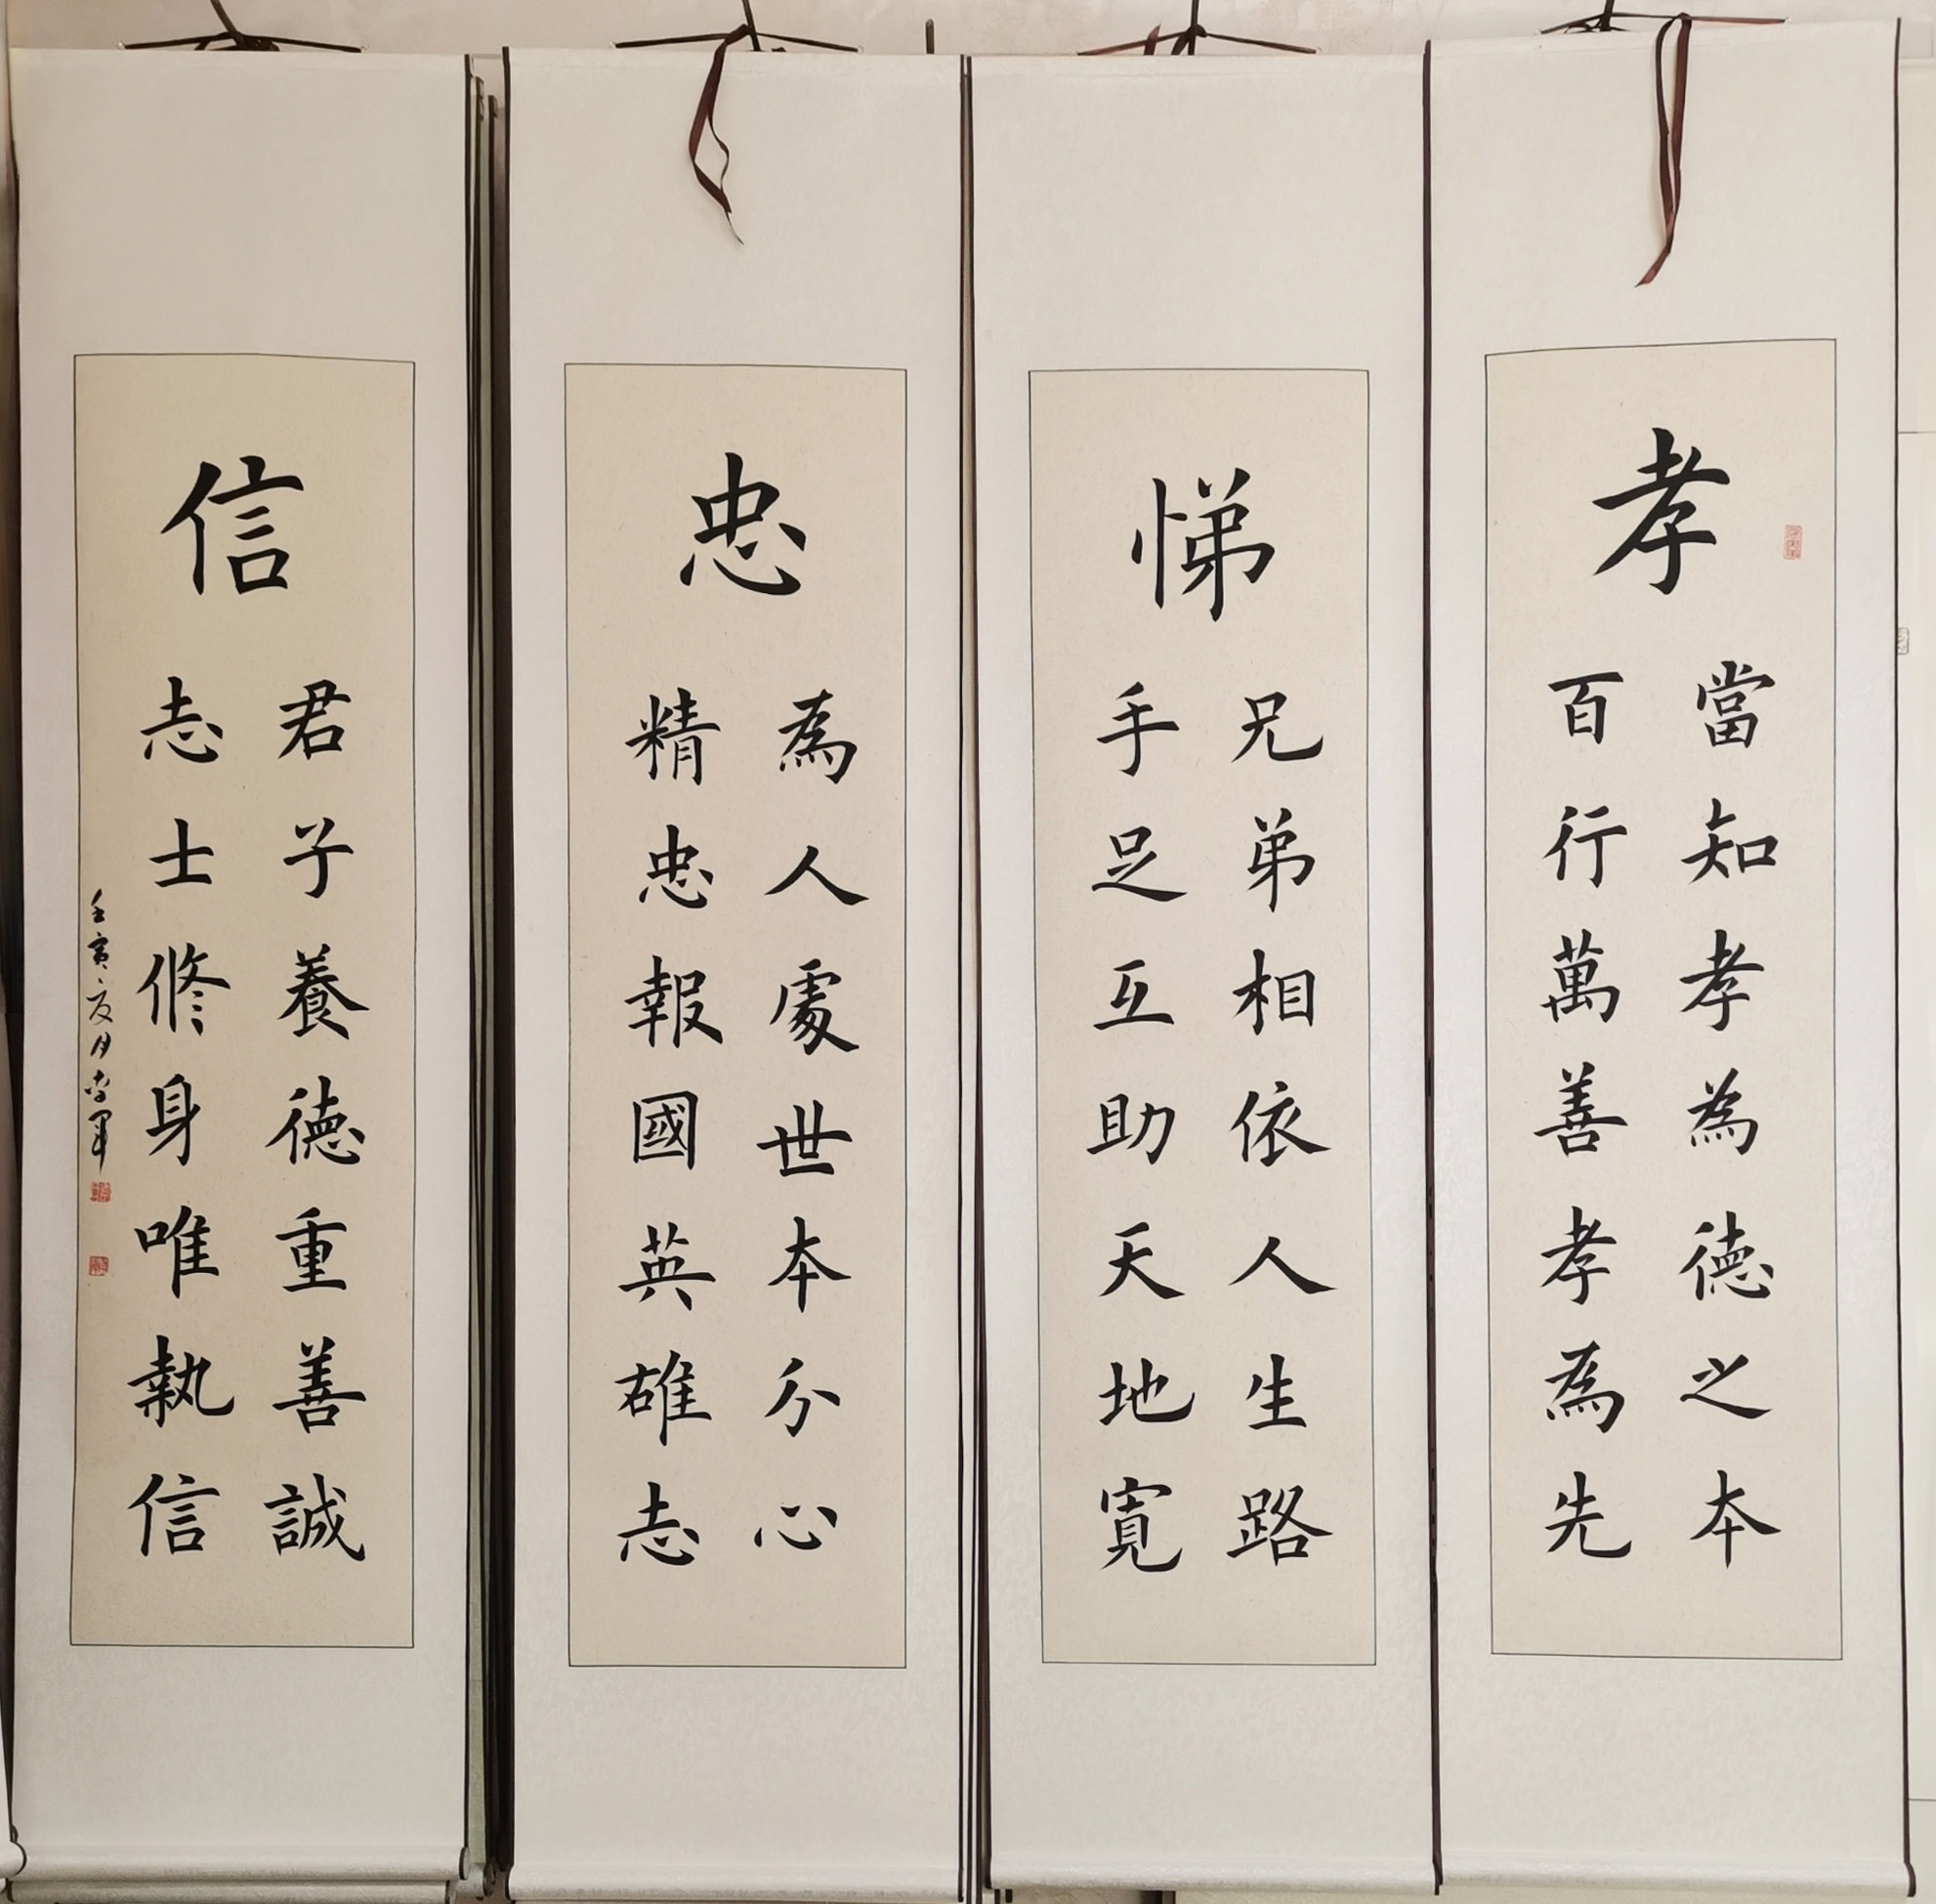 孝
當知孝為德之本
百行萬善孝為先
悌
兄弟相依人生路
手足互助天地寬
忠
為人處世本分心
精忠報國英雄志
信
君子養德重善誠
志士修身唯執信
壬寅